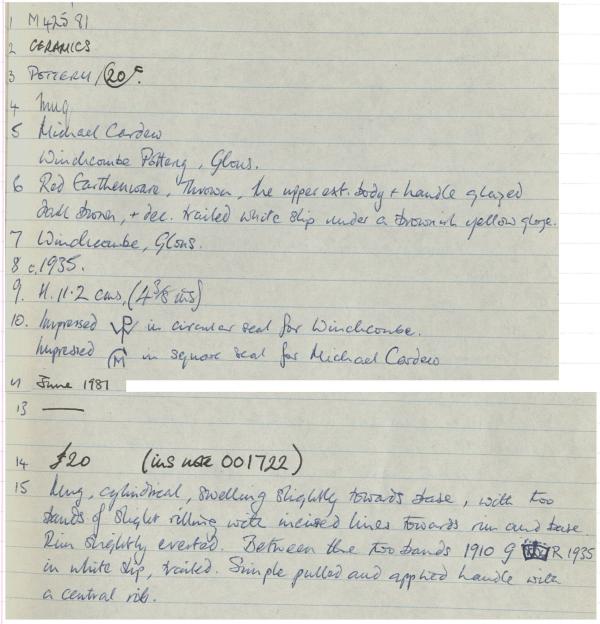 1 M425'81
2 CERAMICS
3 POTTERY, 20c.
4 Mug
5 Michael Cardew
Winchcombe Pottery, Glous.
6 Red Earthenware, Thrown, the upper ext. body + handle glazed
dark brown, + dec. trailed white slip under a brownish yellow glaze.
7 Winchcombe, Glous.
8 c.1935.
9. H. 11.2 cms, (4 3/8 ins)
10. Impressed WP in circular seal for Winchcombe.
Impressed M in square seal for Michael Cardew
11 June 1981
13 —
14 £20 (ins note 001722)
15 Mug, cylindrical, swelling slightly towards base, with two
bands of slight rilling with incised lines towards rim and base.
Rim slightly everted. Between the two bands 1910 G R 1935
in white slip, trailed. Simple pulled and applied handle with
a central rib.